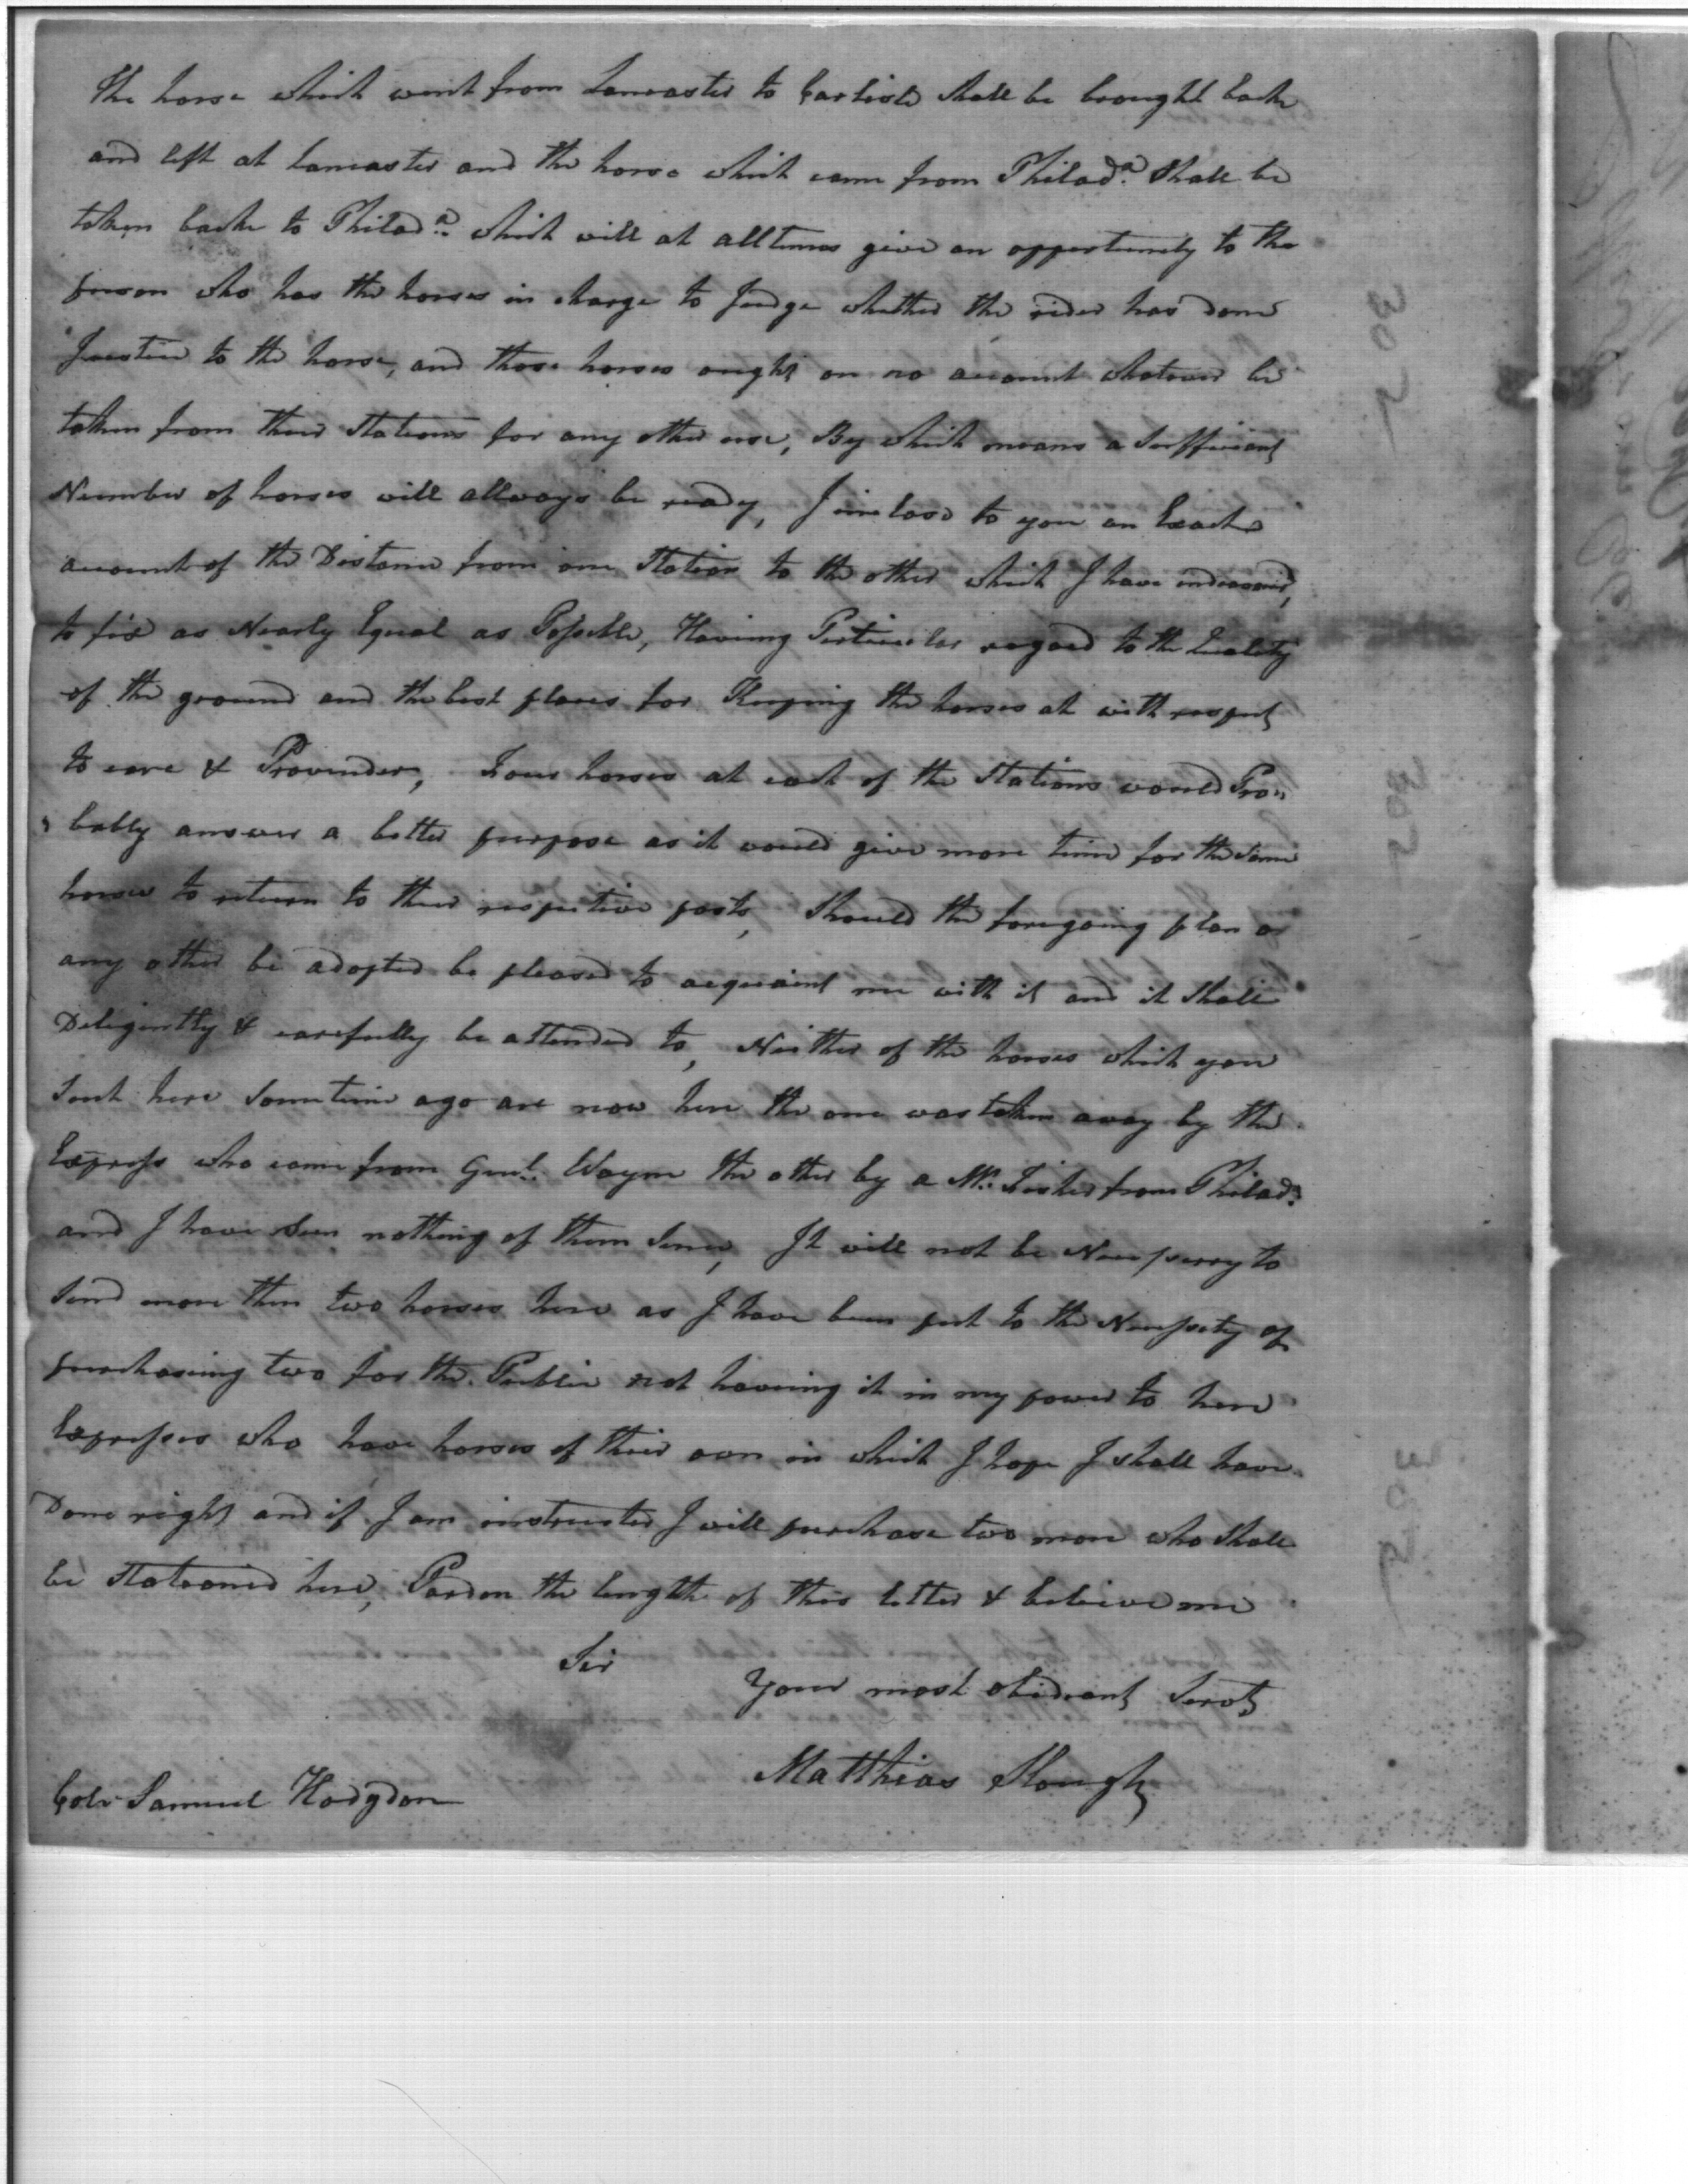 The horse which went from Lancaster to Carlisle shall be brought back
and left at Lancaster and the horse which came from Philad.a shall be
taken back to Philad.a which will at all times give an opportunety to the
person who has the horses in charge to Judge whether the rider has done
Justice to the horse, and those horses ought on no account whatever be
taken from their stations for any other use, By which means a sufficiant
Number of horses will allways be ready, I inclose to you an Exact
account of the Distance from one Station to the other which I have endeavoured
to fix as Nearly Equal as Possible, Having Perticular regard to the Quality
of the ground and the best places for Keeping the horses at with respect
to care & Provender, Four horses at each of the Stations would Pro=
=bably answer a better purpose as it would give more time for the same
horses to return to their respective posts, Should the foregoing plan or
any other be adopted be pleased to acquaint me with it and it shall
Deligently & carefully be attended to, Neither of the horses which you
sent here sometime ago are now here the one was taken away by the
Express who came from Genl. Wayne the other by a Mr. Fisher from Philad.a
and I have seen nothing of them since, It will not be Nessessary to
send more then two horses here as I have been put to the Necessity of
purchasing two for the Public not having it in my power to hire
Expresses who have horses of their own in which I hope I shall have
Done right and if I am instructed I will purchase two more who shall
be stationed here, Pardon the length of this letter & believe me
Sir
Your most obediant Servt
Matthias Slough
Colo. Samuel Hodgdon